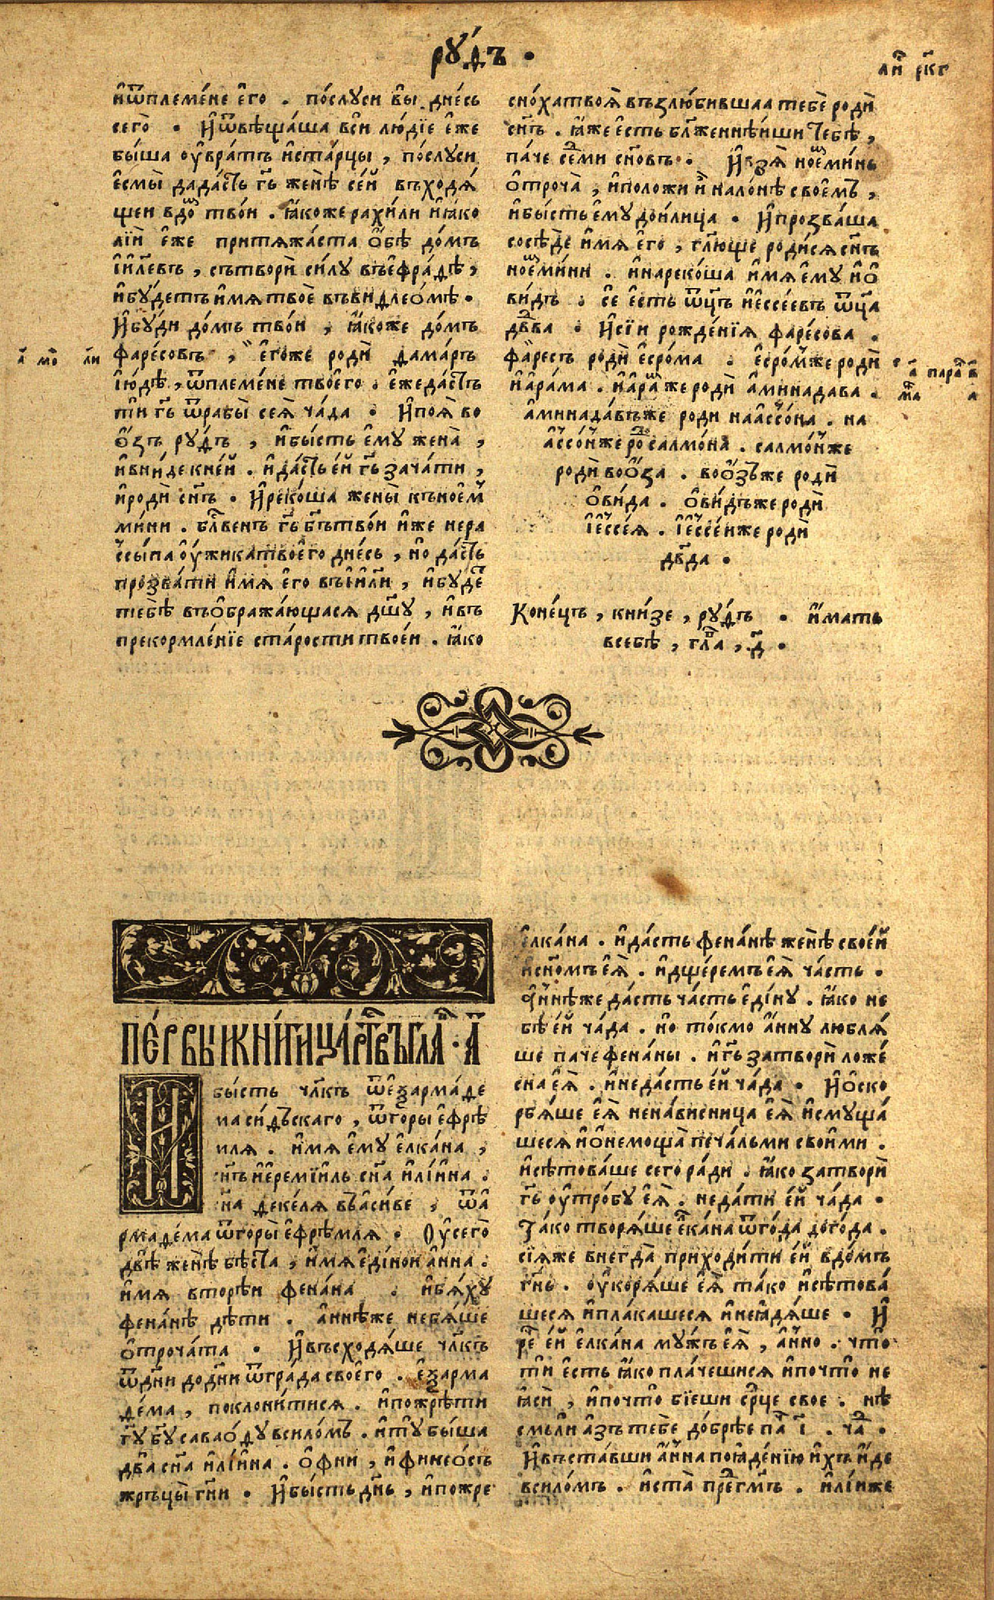 рꙋ́дъ .
ли́ ркг
иѿплеме́не е҆го̀ . по́слꙋси вы̀ дне́сь
сего̀ . И҆ѿвѣща́ша всѝ лю́дїе е҆́же
бы́ша ѹ҆вра́тъ и҆ста́рцы , по́слꙋси
е҆смы̀ дада́сть гь҃ женѣ̀ се́й въходѧ́
щеи вдо́ тво́и . ꙗ҆́коже рахи́ли и҆ꙗ҆́ко
лі́и е҆́же притѧжа́ста о҆́бѣ до́мъ
і҆и҃левъ , сътворѝ си́лꙋ въефра́дѣ ,
и҆бꙋ́детъ и҆́мѧ твоѐ въвидлео́мѣ .
И҆бꙋ́ди до́мъ тво́и , ꙗ҆́коже до́мъ
фаре́совъ , е҆го́же родѝ дама́ръ
і҆ю́дѣ , ѿплеме́не твоего̀ . е҆́жеда́стъ
ти гь҃ ѿрабы̀ сеѧ̀ ча́да . И҆поѧ̀ во
о҆́зъ рꙋ́дъ , и҆бы́сть е҆мꙋ̀ жена̀ ,
и҆вни́де кне́й . и҆да́сть е́й гь҃ зача́ти ,
и҆родѝ сн҃ъ . И҆реко́ша жены̀ къное҆м
ми́ни . блг҃венъ гь҃ бг҃ътво́и и҆́же нера
ссы́па ѹ҆́жикатвоего̀ дне́сь , но̀ да́сть
прозва́ти и҆́мѧ е҆го̀ въі҆и҃ли , и҆бꙋ́де
тебѣ̀ въо҆бража́ющасѧ дш҃ꙋ , и҆въ
прекормле́нїе ста́рости твое́и . ꙗ҆́ко
сно́хатвоѧ̀ възлюби́вшаа тебѐ родѝ
сн҃ъ . ꙗ҆́же е҆́сть бл҃же́ннѣиши тебѣ̀ ,
па́че се́ми сн҃овъ . И҆взѧ̀ ное҆ми́нь
о҆троча̀ , и҆положѝ и҆̀ нало́нѣ свое́мъ ,
и҆бы́сть е҆мꙋ̀ дои́лица . И҆прозва́ша
сосѣ́де и҆́мѧ е҆го̀ , гл҃юще роди́сѧ сн҃ъ
ное҆ми́ни . и҆нареко́ша и҆́мѧ е҆мꙋ̀ и҆о҆
ви́дъ . сѐ е҆́сть ѿц҃ъ и҆ессе́евъ ѿц҃а
дв҃да . И҆сі́и рожде́нїѧ фаре́сова .
фаре́съ родѝ е҆сро́ма . е҆сро́мже родѝ
и҆а҆ра́ма . и҆а҆ра́ же родѝ а҆минада́ва .
а҆минада́въже родѝ наассо́на . на
ассо́нже ро салмо́на . салмо́нже
родѝ воо҆́за . воо҆́зъже родѝ
о҆ви́да . о҆ви́дъже родѝ
і҆ессе́ѧ . і҆ессе́иже родѝ
дв҃да .
Коне́цъ , кни́зе , рꙋ́дъ . и҆́мать
всебѣ̀ , гл҃а , д҃ .
ПЕ́РВЫѦ КНИ́ГИ ЦА́РТВЪ ГЛА . А҃
И҆
бы́сть чл҃къ ѿе҆ꙁарма́де
ма си́дъскаго , ѿгоры̀ е҆фрѣ
мля . и҆́мѧ е҆мꙋ̀ е҆лка́на ,
сн҃ъ и҆ереми́иль сн҃а и҆лі́ина .
сн҃а декелѧ въаси́ве , ѿа
рмаде́ма ѿгоры̀ е҆фре́млѧ . Оу҆сего̀
двѣ̀ женѣ̀ бѣ́ста , и҆́мѧ е҆ди́нои а҆́нна .
и҆́мѧ вторѣ́и фена́на . и҆бѧ́хꙋ
фена́нѣ дѣ́ти . а҆́ннѣже небѧ́ше
о҆троча́та . И҆въсхожда́ше чл҃къ
ѿдни́ додни́ ѿгра́да своего̀ . е҆ꙁарма
де́ма , поклони́тисѧ . и҆пожрѣ́ти
гꙋ҃ бꙋ҃ савао́дꙋ всило́мъ . и҆тꙋ̀ бы́ша
два̀ сн҃а и҆лі́ина . о҆фни , и҆финео́съ
жръцы̀ гн҃и . И҆бы́сть дн҃ь , и҆пожре
е҆лка́на . и҆да́сть фена́нѣ женѣ̀ свое́й
и҆сно҃мъ е҆ѧ̀ . и҆дще́ремъ е҆ѧ̀ ча́сть .
а҆́ннѣже да́сть ча́сть е҆ди́нꙋ . ꙗ҆́ко не
бѣ̀ е́й ча́да . но̀ то́кмо а҆́ннꙋ люблѧ́
ше па́че фена́ны . и҆гь҃ затворѝ ложе
сна̀ е҆ѧ̀ . и҆неда́сть е́й ча́да . И҆о҆ско
рбѧ́ше е҆ѧ̀ ненави́сница е҆ѧ̀ и҆смꙋща́
шесѧ и҆о҆немоща̀ печа́льми свои́ми .
и҆сѣ́товаше сего̀ ра́ди . ꙗ҆́ко затворѝ
гь҃ ѹ҆тро́бꙋ е҆ѧ̀ . неда́ти е́й ча́да .
Та́ко творѧ́ше е҆лка́на ѿго́да дого́да .
сїѧ́же внегда̀ приходи́ти е́й вдо́мъ
гн҃ь . ѹ҆корѧ́ше е҆ѧ̀ та́ко и҆сѣ́това
шесѧ и҆пла́кашесѧ и҆неꙗдѧ́ше . И҆
ре е́й е҆лка́на мꙋ́жъ е҆ѧ̀ , а҆́нно . что̀
ти е҆́сть ꙗ҆́ко пла́чешисѧ и҆почто̀ не
ꙗ҆сѝ , и҆почто̀ бїе́ши ср҃це своѐ . нѣ
смьли а҆́зъ тебѐ до́брѣе па і҃ . ча .
И҆въста́вши а҆́нна поꙗде́нїю и҆́хъ и҆́де
всило́мъ . и҆ста̀ пре гм҃ъ . и҆лі́иже